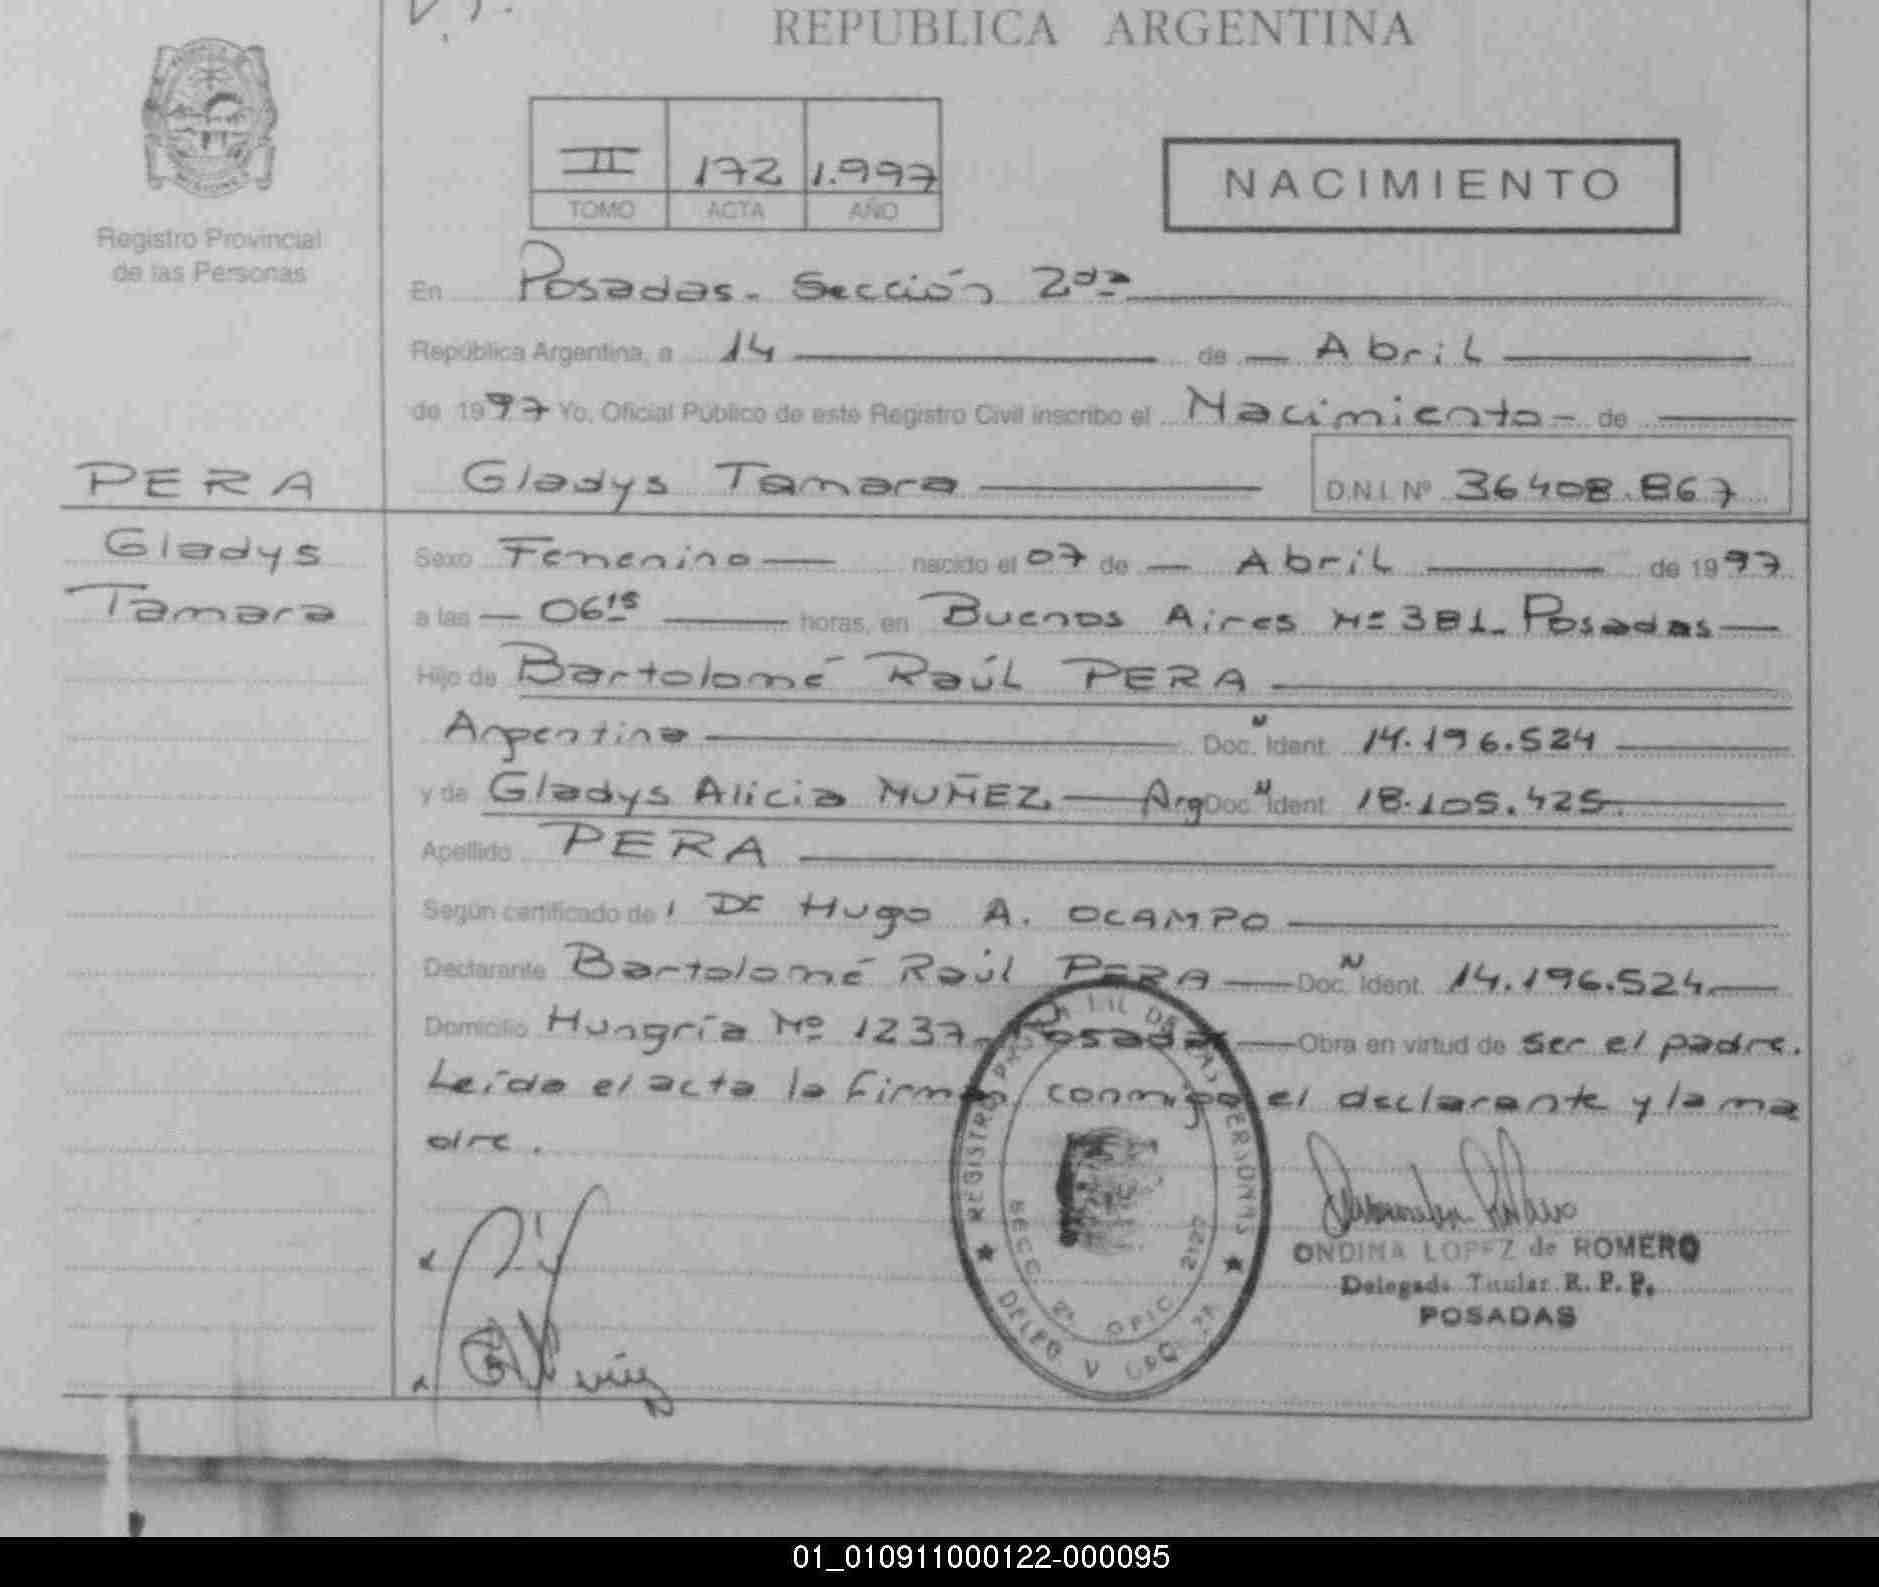 REPUBLICA ARGENTINA
Registro Provincial
de las Personas
II 172 1.997
TOMO ACTA AÑO
NACIMIENTO
En Posadas. Sección 2da
República Argentina, a 14 de Abril
de 1997 Yo, Oficial Público de este Registro Civil inscribo el Nacimiento de
PERA
Gladys Tamara D.N.I. Nº 36408.867
Gladys
Tamara
Sexo Femenino nacido el 07 de Abril de 1997
a las 06 15 horas, en Buenos Aires Nº 381. Posadas
Hijo de Bartolomé Raúl PERA
Argentina Doc. N Ident. 14.196.524
y de Gladys Alicia MUÑEZ Arg Doc. N Ident. 18.105.425.
Apellido PERA
Según certificado de Dr Hugo A. OCAMPO
Declarante Bartolomé Raúl PERA Doc. N Ident. 14.196.524
Domicilio Hungría Nº 1237 Posadas Obra en virtud de ser el padre.
Leída el acta la firman conmigo el declarante y la ma
dre.
REGISTRO DE LAS PERSONAS
SECC. 2ª OFIC. 2127
ONDINA LOPEZ de ROMERO
Delegada Titular R. P. P.
POSADAS
01_010911000122-000095